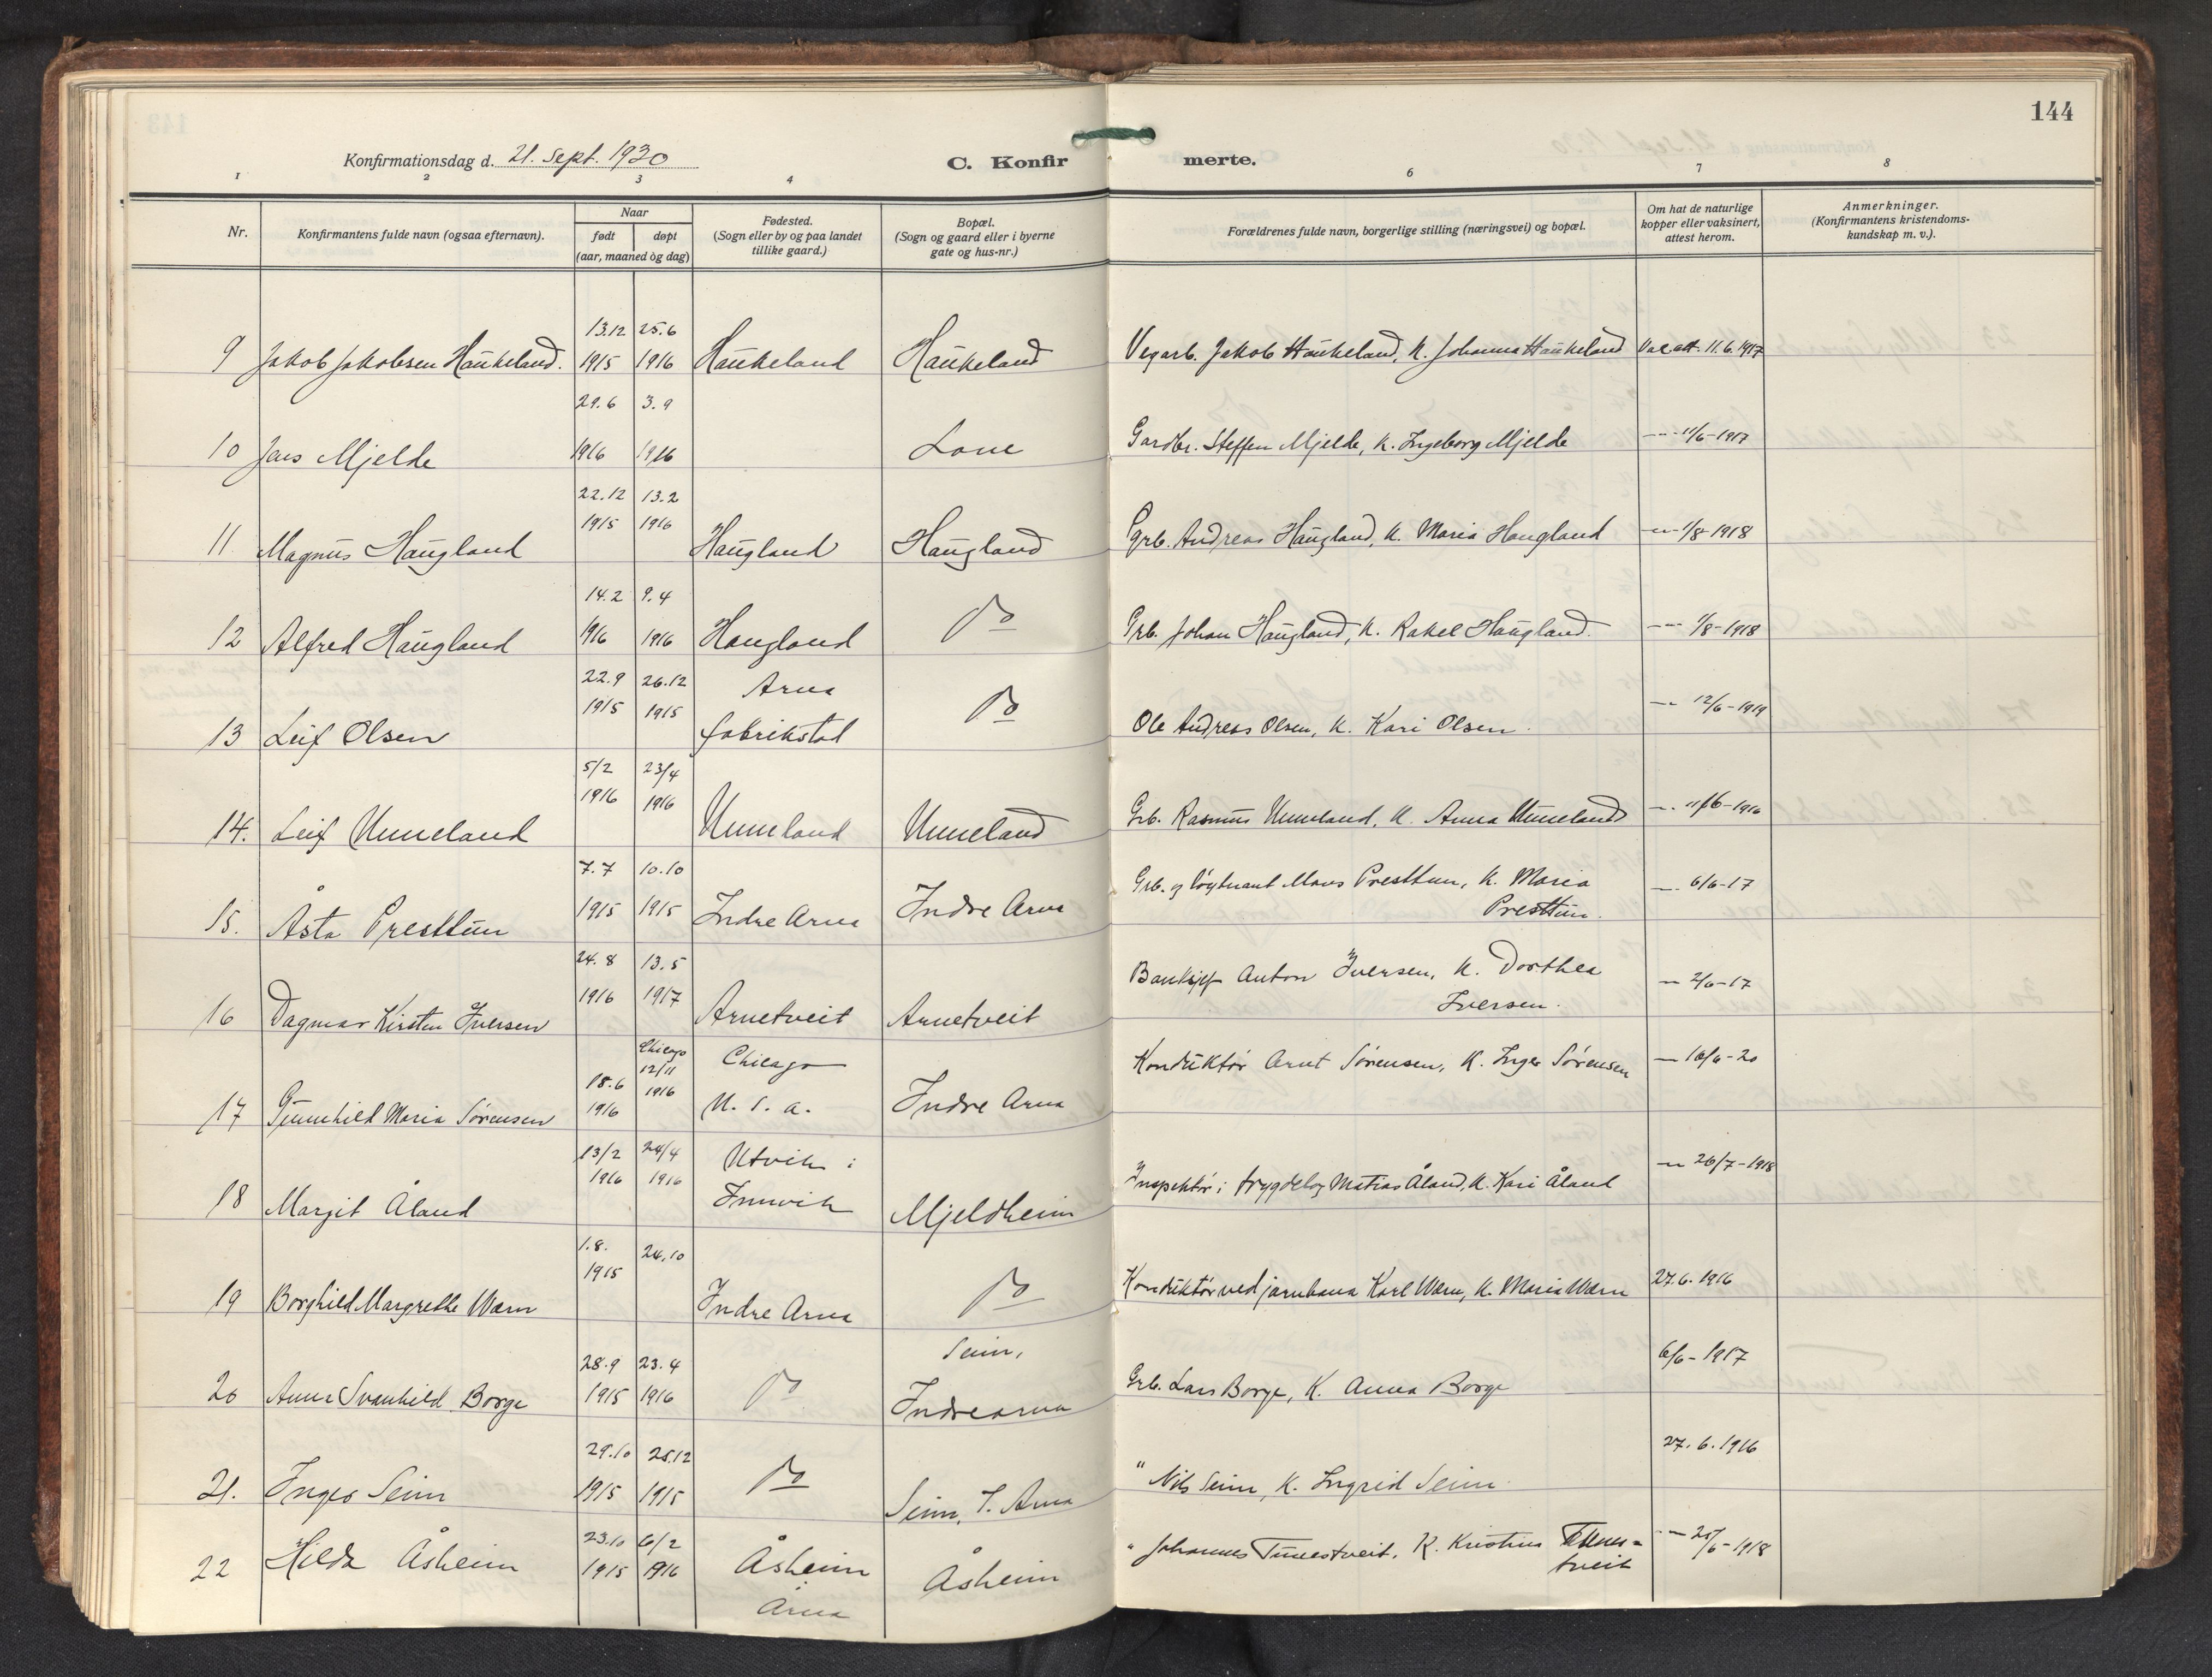 144
Konfirmationsdag d. 21. Sept. 1930
C. Konfirmerte.
1 2 3 4 6 7 8
Nr.
Konfirmantens fulde navn (ogsaa efternavn).
Naar
født døpt
(aar, maaned og dag)
Fødested.
(Sogn eller by og paa landet
tillike gaard.)
Bopæl.
(Sogn og gaard eller i byerne
gate og hus-nr.)
Forældrenes fulde navn, borgerlige stilling (næringsvei) og bopæl.
Om hat de naturlige
kopper eller vaksinert,
attest herom.
Anmerkninger.
(Konfirmantens kristendoms-
kundskap m. v.).
13.12 25.6
9 Jakob Jakobsen Haukeland. 1915 1916 Haukeland Haukeland Vegarb. Jakob Haukeland, K. Johanna Haukeland Vac.att. 11.6.1917
29.6 3.9
10 Jens Mjelde 1916 1916 Lone Gardbr. Steffen Mjelde, K. Ingeborg Mjelde — 11/6-1917
22.12 13.2
1915 1916
11 Magnus Haugland Haugland Haugland Grb. Andreas Haugland, K. Maria Haugland — 1/8-1918
14.2 9.4
12 Alfred Haugland 1916 1916 Haugland Do Grb. Johan Haugland, K. Rakel Haugland. — 1/8-1918
22.9 26.12 Arna
1915 1915
13 Leif Olsen fabrikstad Do Ole Andreas Olsen, K. Kari Olsen. — 12/6-1919
5/2 23/4
1916 1916
14. Leif Unneland Unneland Unneland Grb. Rasmus Unneland, K. Anna Unneland — 11/6-1916
7.7 10.10
1915 1915
15. Åsta Presttun Indre Arna Indre Arna Grb. og løytnant Mons Presttun, K. Maria
Presttun. — 6/6-17
24.8 13.5
1916 1917
16 Dagmar Kirsten Iversen Arnetveit Arnetveit Anton Iversen, K. Dorthea
Iversen. — 2/6-17
Chicago
12/11
18.6 1916
1916
17 Gunnhild Maria Sørensen Chicago
U. S. a. Indre Arna Konduktør Arnt Sørensen, K. Inger Sørensen — 16/6-20
13/2 24/4
1916 1916
18 Margit Åland Utvik i
Innvik Mjeldheim Inspektør i trygdelag Matias Åland, K. Kari Åland — 26/7-1918
1.8. 24.10
1915
19 Borghild Margrethe Wærn Indre Arna Do Konduktør ved jarnbana Karl Wærn, K. Maria Wærn 27.6.1916
28.9 23.4
1915 1916
20 Anna Svanhild Borge Do Seim,
Indre arna Grb. Lars Borge, K. Anna Borge 6/6-1917
29.10 25.12
1915 1915
21. Inger Seim Do Seim, I. Arna " Nils Seim, K. Ingrid Seim. 27.6.1916
23.10 6/2
1915 1916
22 Hilda Åsheim Åsheim
Arna Åsheim " Johannes Tunestveit, K. Kristine Tunes=
tveit — 25/6-1918